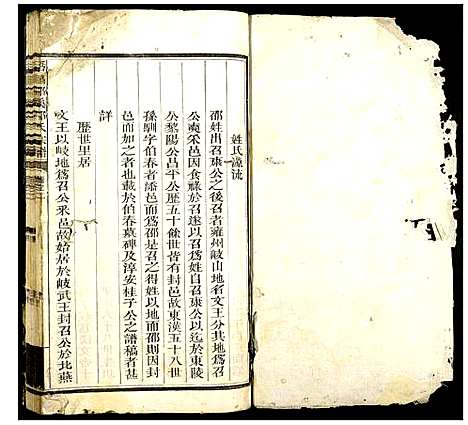 姓氏源流
邵姓出召康公之後召者雍州岐山地名文王分其地爲召
公奭采邑因食祿於召遂以召爲姓自召康公以迄於東陵
公黎陽公昌平公歷五十餘世皆有封邑故東漢五十八世
孫馴字伯春者添邑而爲邵是召之得姓以地而邵則因封
邑而加詳也載於伯春墓碑及淳安桂子公之譜稿者甚
詳
歷世里居
文王以岐地爲召公采邑故始居於岐武王封召公於北燕